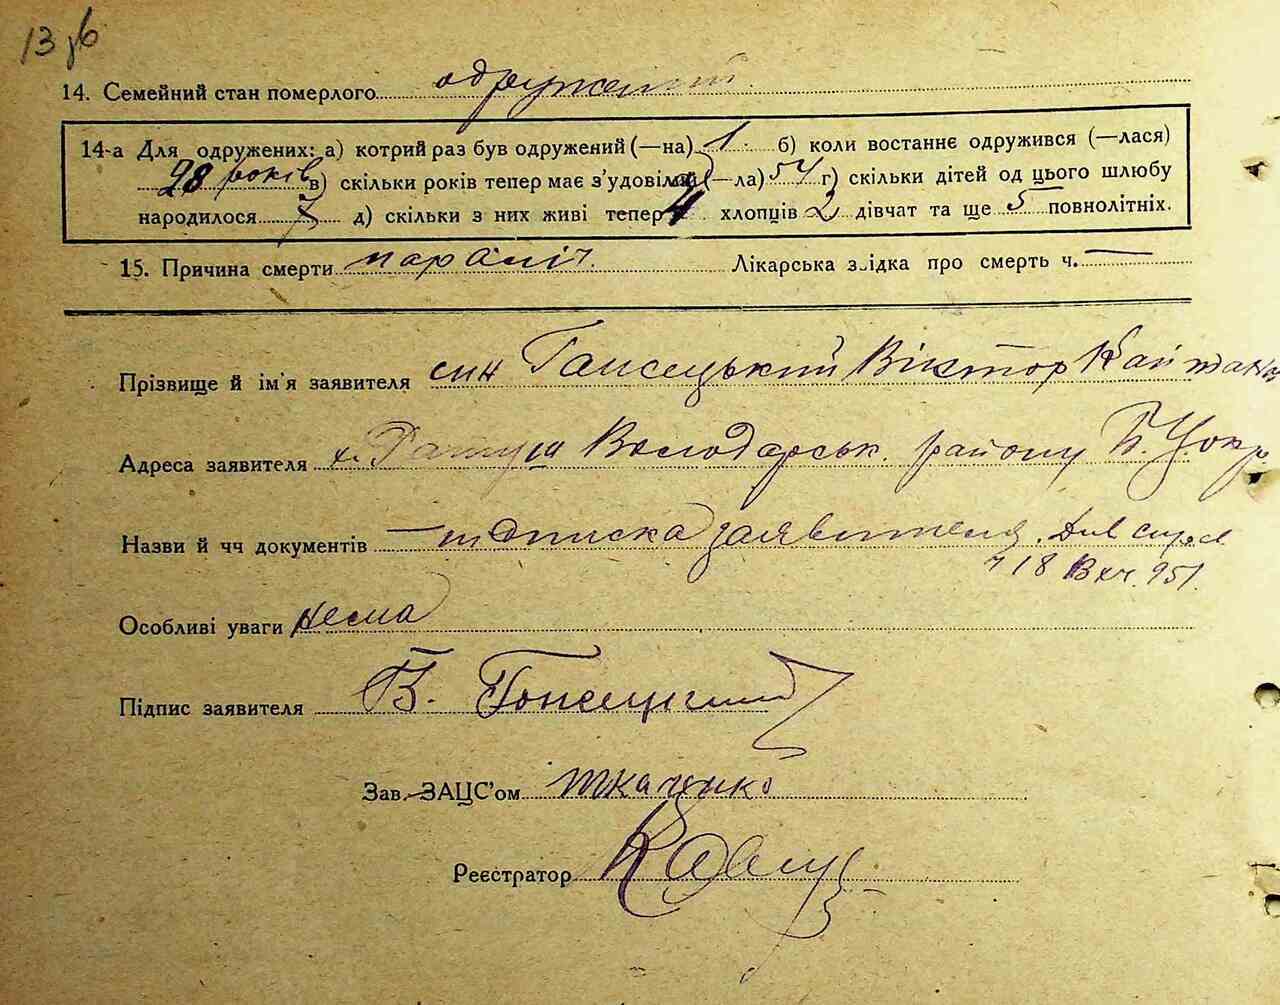 13 зб
14. Семейний стан померлого одружений
14-а Для одружених: а) котрий раз був одружений (—на) 1. б) коли востаннє одружився (—лася)
28 років в) скільки років тепер має з'удовіл (—ла) 54 г) скільки дітей од цього шлюбу
народилося 7 д) скільки з них живі тепер 4 хлопців 2 дівчат та ще 5 повнолітніх.
15. Причина смерти параліч. Лікарська звідка про смерть ч. —
Прізвище й ім'я заявителя син Гансецький Віктор
Адреса заявителя х. Ратуш Володарськ. району Б.Ц. окр.
Назви й чч документів — підписка заявителя.
ч 18 951.
Особливі уваги нема
Підпис заявителя В. Гонсецкий
Зав. ЗАЦС'ом Ткаченко
Реєстратор